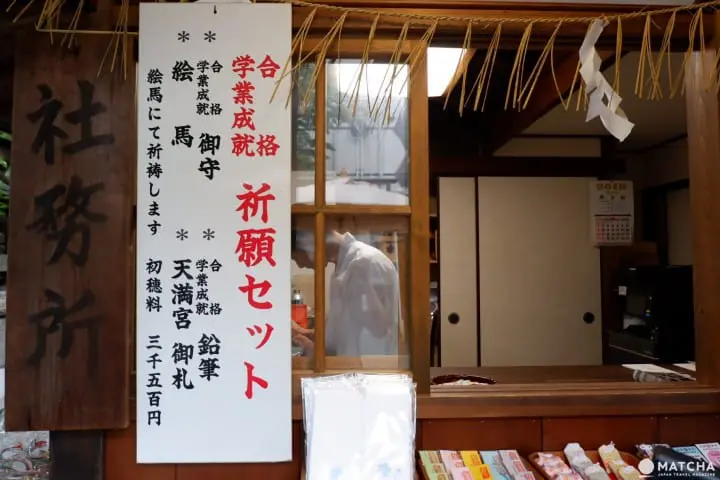 社務所
合格
学業成就
祈願セット
* 合格
学業成就
御守
* 合格
学業成就
鉛筆
* 絵馬
* 天満宮 御札
絵馬にて祈祷します 初穂料 三千五百円
MATCHA
JAPAN TRAVEL MAGAZINE